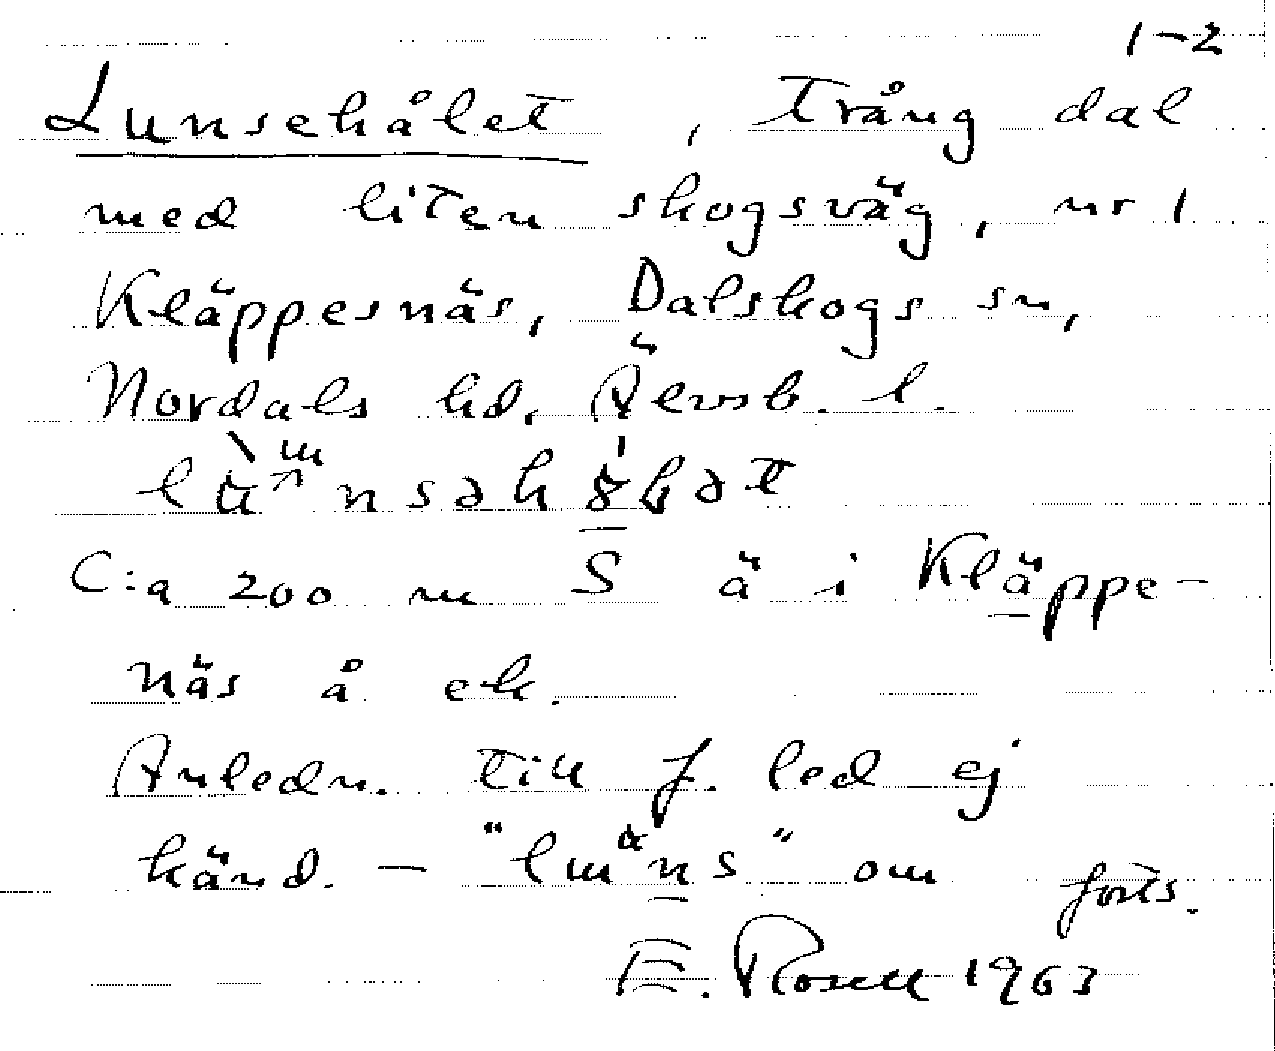 1-2
Lunsehålet, Trång dal
med liten skogsväg, nr 1
Kläppesnäs, Dalskogs sn,
Nordals hd, Älvsb. l.
C:a 200 m S ä i Kläppe-
näs å ek.
Anledn. till f. led ej
känd. - om forts.
E. Rosell 1963